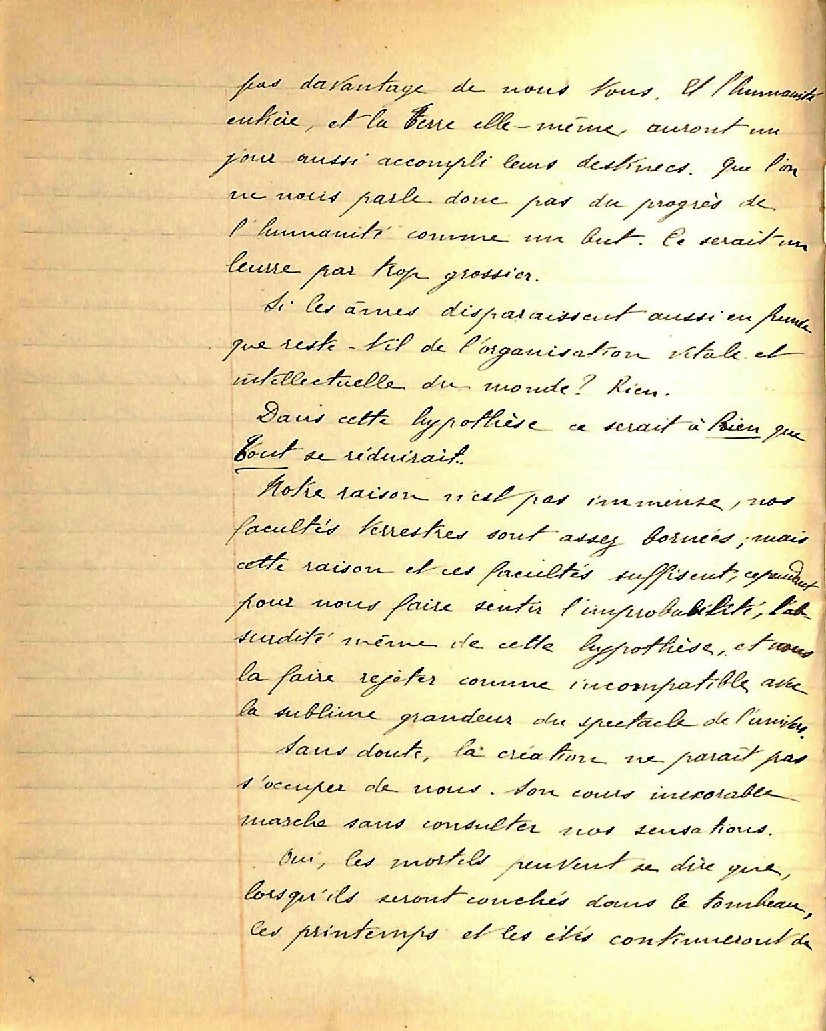 pas davantage de nous tous. Et l'humanité
entière, et la Terre elle-même, auront un
jour aussi accompli leurs destinées. Que l'on
ne nous parle donc pas du progrès de
l'humanité comme un but. Ce serait un
leurre par trop grossier.
Si les âmes disparaissent aussi en fumée
que reste-t-il de l'organisation vitale et
intellectuelle du monde? Rien.
Dans cette hypothèse ce serait à Rien que
Tout se réduirait.
Notre raison n'est pas immense, nos
facultés terrestres sont assez bornées; mais
cette raison et ces facultés suffisent, cependant
pour nous faire sentir l'improbabilité, l'ab-
surdité même de cette hypothèse, et nous
la faire rejeter comme incompatible avec
la sublime grandeur du spectacle de l'univers.
Sans doute, la création ne parait pas
s'occuper de nous. Son cours inexorable
marche sans consulter nos sensations.
Oui, les mortels peuvent se dire que,
lorsqu'ils seront couchés dans le tombeau,
les printemps et les étés continueront de